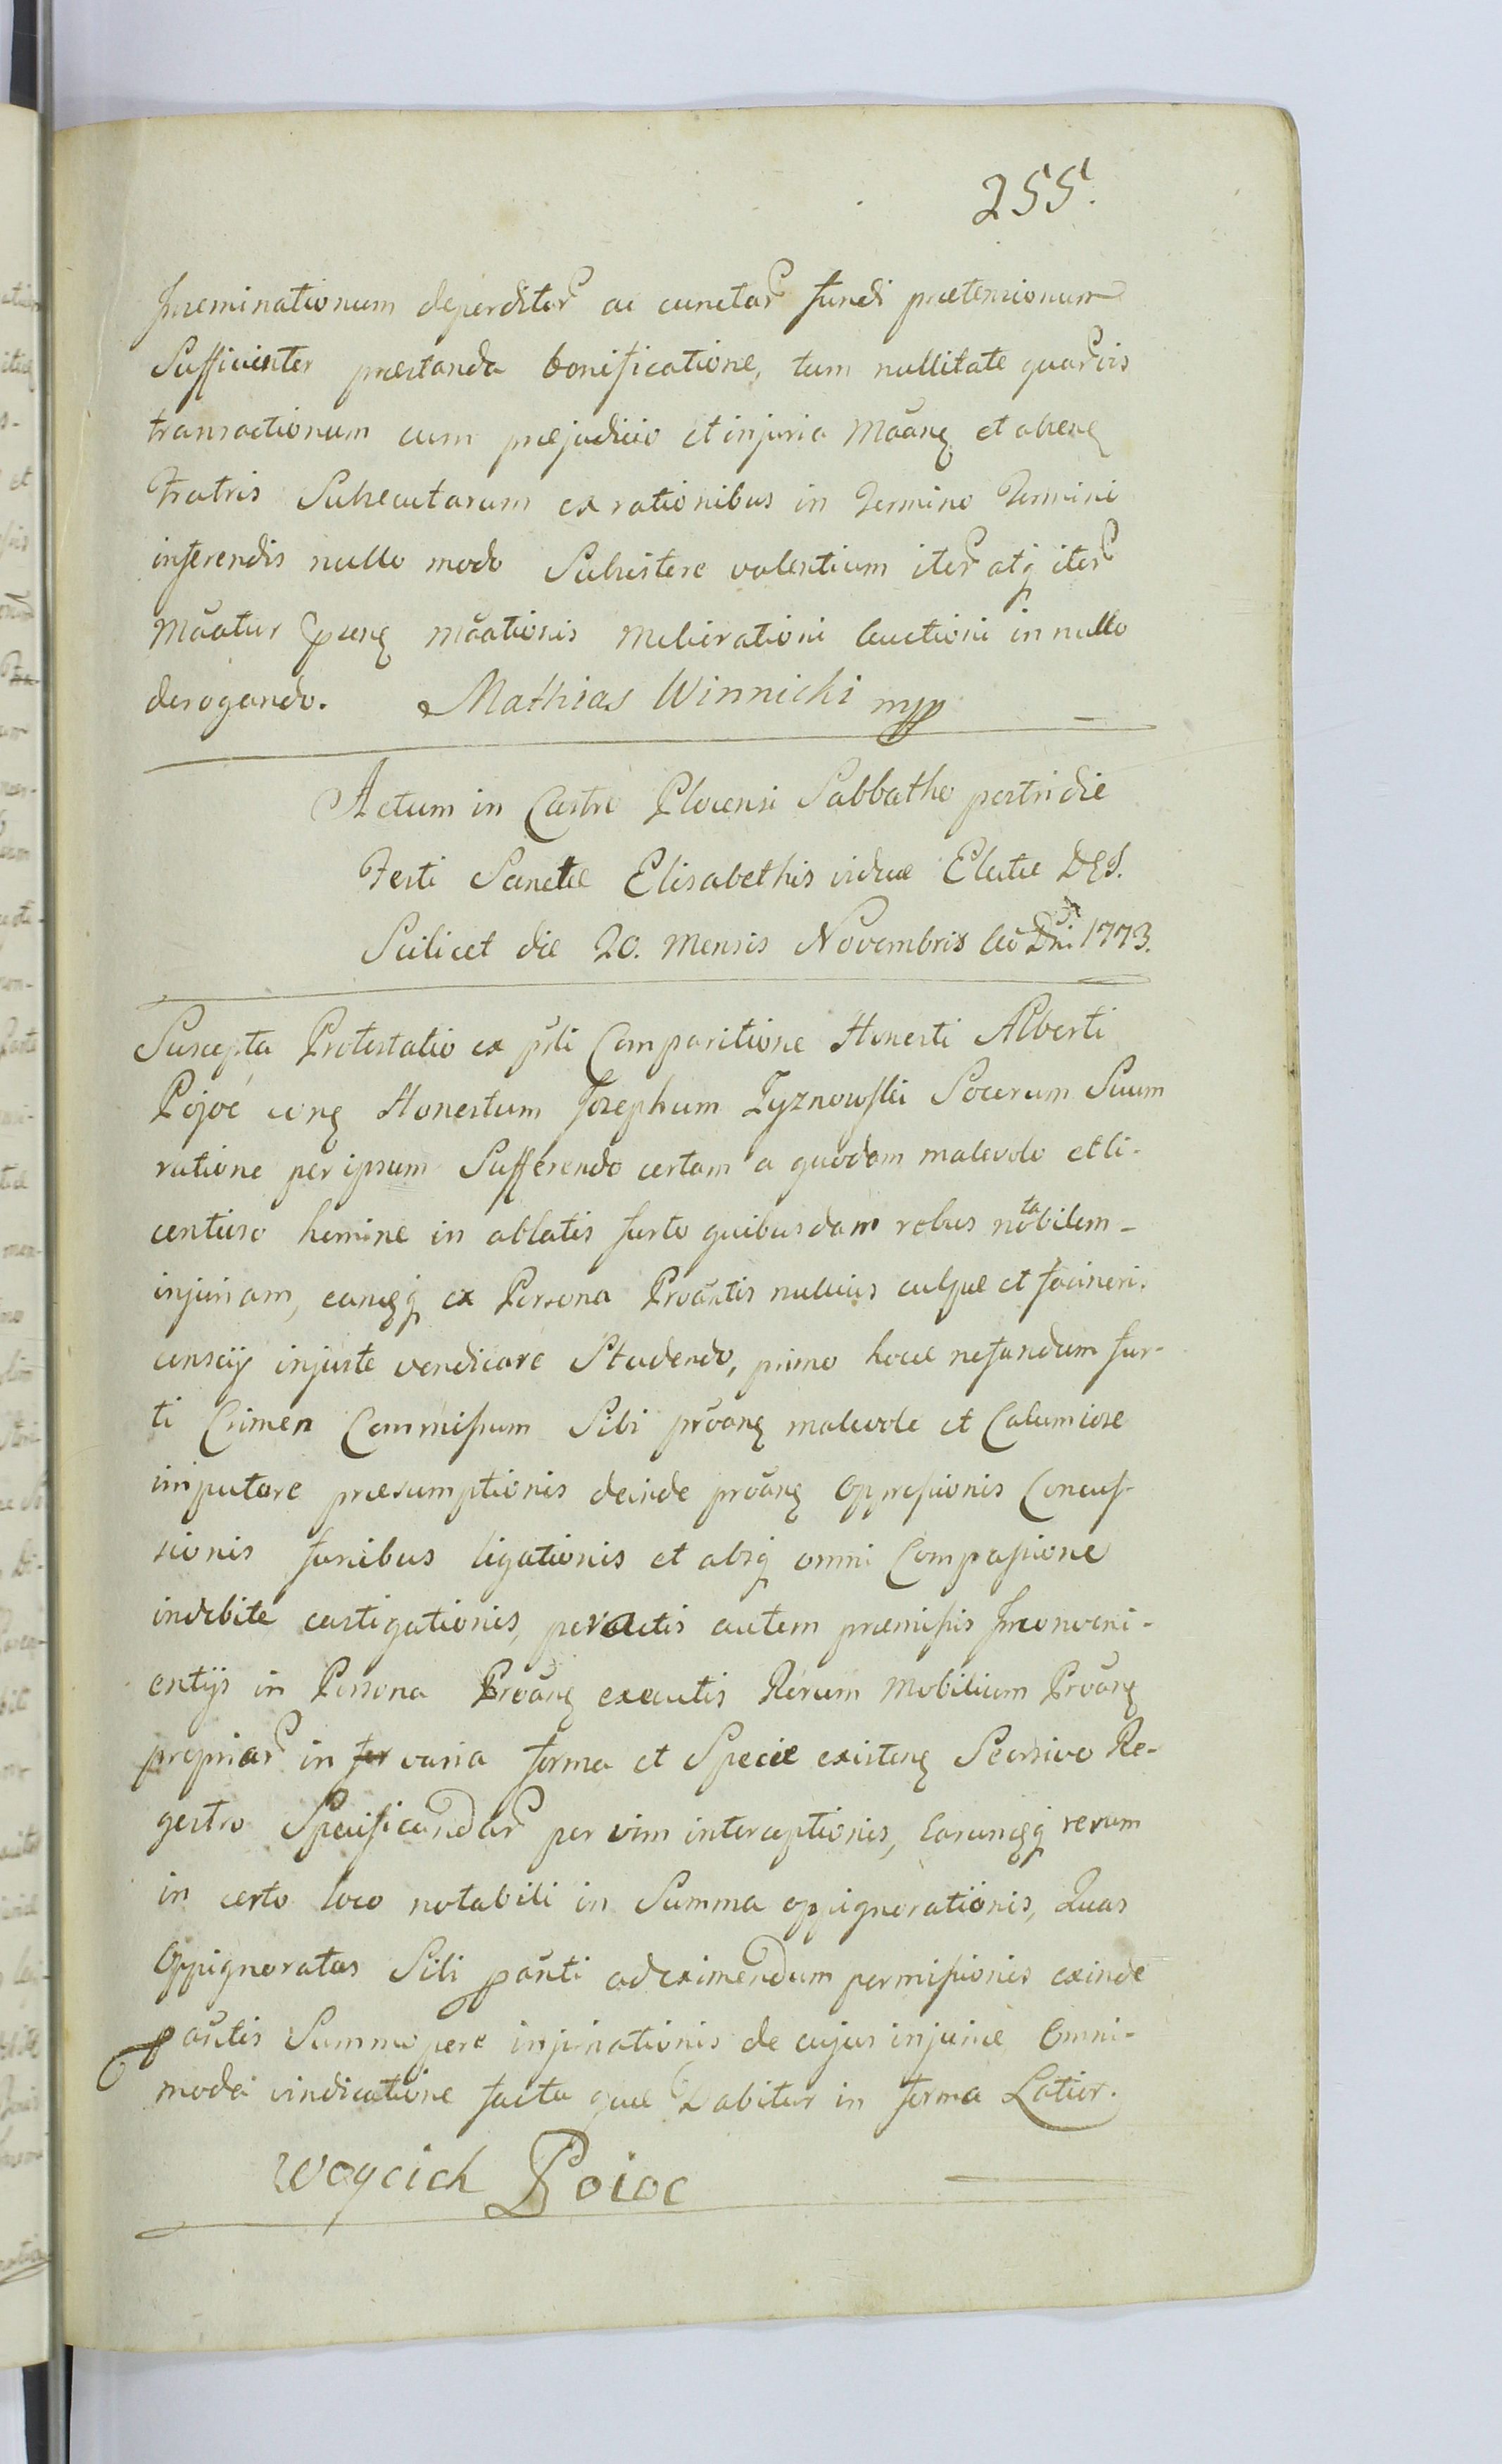 255.
Inseminationum deperditar ac cunctar fundi praetensionum
Sufficienter praestanda bonificatione, tum nullitate quarvis
transactionum cum praejudicio et injuria Mãang et abseng
Fratris Subsecutarum ex rationibus in Termino Termini
inferendis nullo modo Subsistere valentium iter atq iter
Mãatur pnseng mãationis meliorationi auctioni in nullo
derogando. Mathias Winnicki mpp
Actum in Castro Plocensi Sabbatho postridie
Festi Sanctae Elisabethis viduae Electae DEI.
Scilicet die 20. Mensis Novembris Aõ Dni 1773.
Suscepta Protestatio ex psti Comparitione Honesti Alberti
Pojoć cong Honestum Josephum Zyznowski Socerum Suum
ratione per ipsum Sufferendo certam a quodam malevolo et li-
centioso homine in ablatis furto quibusdam rebus notabilem-
injuriam, eamqq ex Persona Proãntis nulius culpae et facineri.
consciy injuste vendicare Studendo, primo hocce nefandum fur-
ti Crimen Commissum Sibi prõang malevole et Calumiose
imputare praesumptionis deinde prõang Oppressionis Concus-
sionis funibus ligationis et absq omni Compassione
indebite castigationis, peractis autem praemissis Inconveni-
entijs in Persona Prõang executis Rerum Mobilium Prõang
propriar in for varia forma et Specie existeng Seorsivo Re-
gestro Specificandar per vim interceptionis, Earumqq rerum
in certo loco notabili in Summa oppignorationis, Quas
Oppignoratas Sibi pãnti ad eximendum permissionis exinde
pãntis Summopere injuriationis de cujus injuriae Omni-
moda vindicatione facta quae Dabitur in forma Latior.
Woycich Poioc